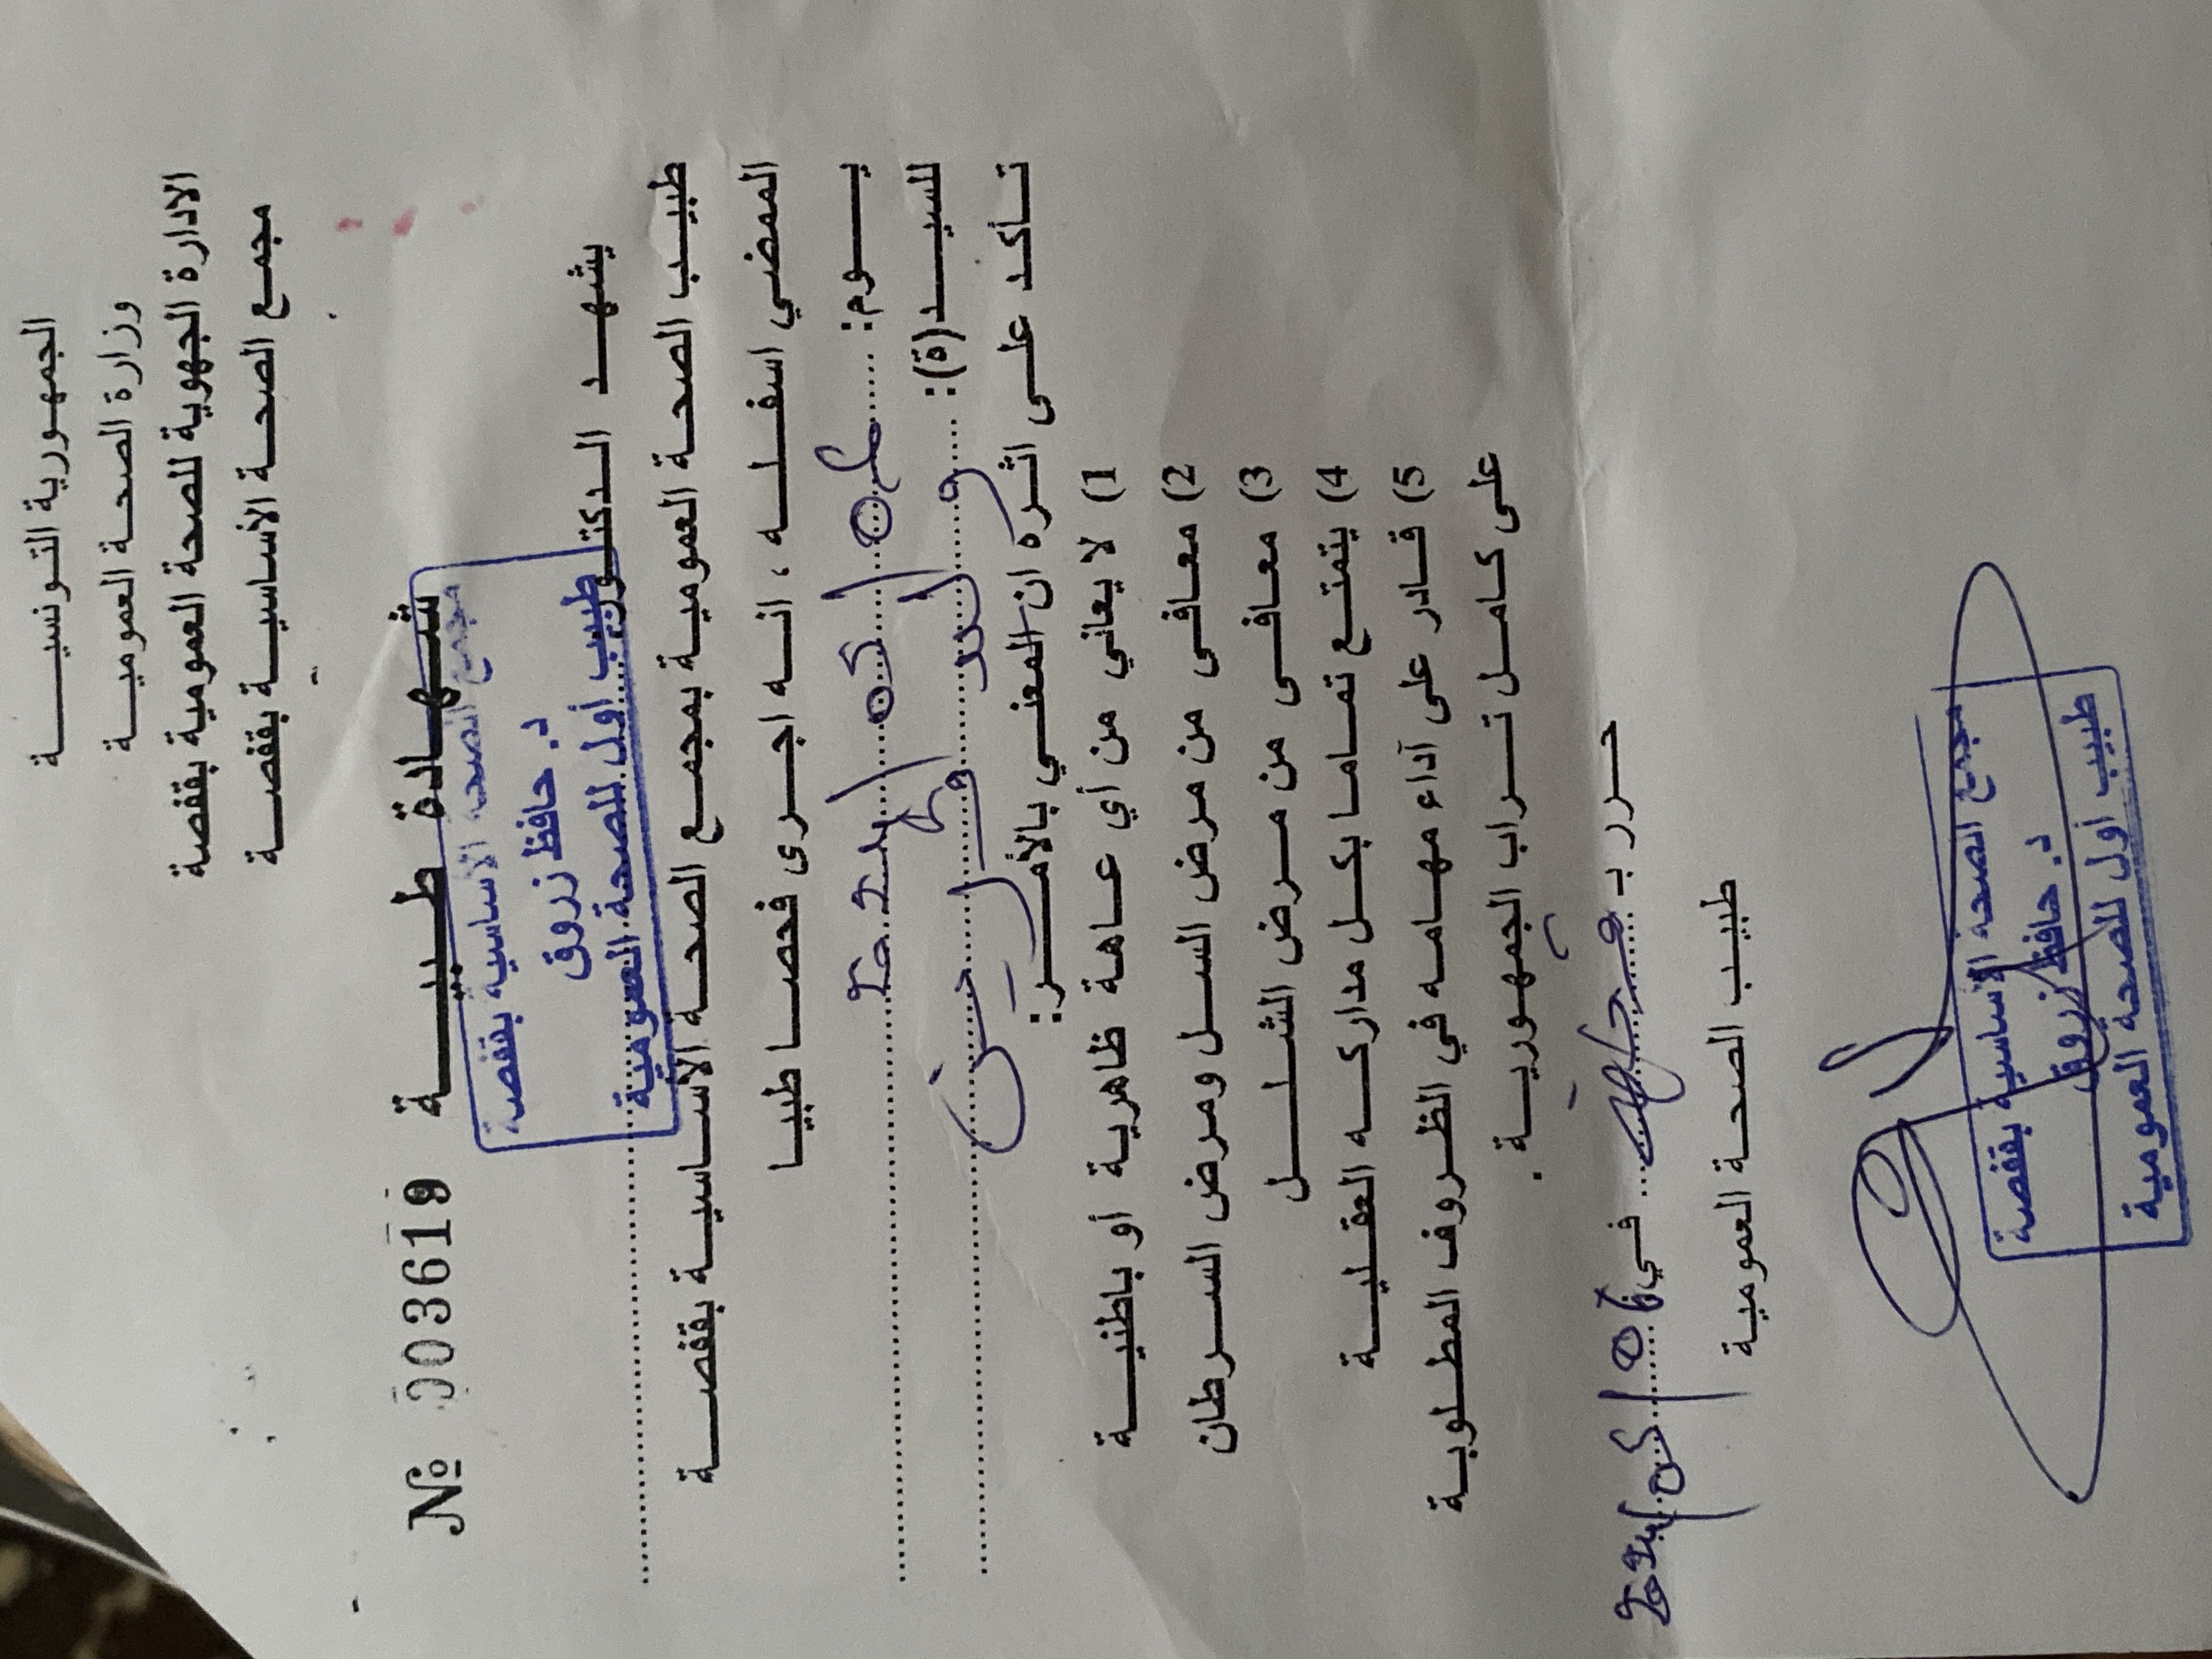 الجمهورية التونسية
وزارة الصحة العمومية
الادارة الجهوية للصحة العمومية بقفصة
مجمع الصحة الأساسية بقفصة
شهادة طبية
№ 003619
مجمع الصحة الأساسية بقفصة
د. حافظ زروق
طبيب أول للصحة العمومية
يشهد الدكتور
طبيب الصحة العمومية بمجمع الصحة الأساسية بقفصة
الممضي اسفله ، انه اجرى فحصا طبيا
يوم:
للسيد(ة):
تأكد على اثره ان المعني بالأمر:
1) لا يعاني من أي عاهة ظاهرية أو باطنية
2) معافى من مرض السل ومرض السرطان
3) معافى من مرض الشلل
4) يتمتع تماما بكل مداركه العقلية
5) قادر على آداء مهامه في الظروف المطلوبة
على كامل تراب الجمهورية .
حرر بـ قفصة في
طبيب الصحة العمومية
مجمع الصحة الأساسية بقفصة
د. حافظ زروق
طبيب أول للصحة العمومية